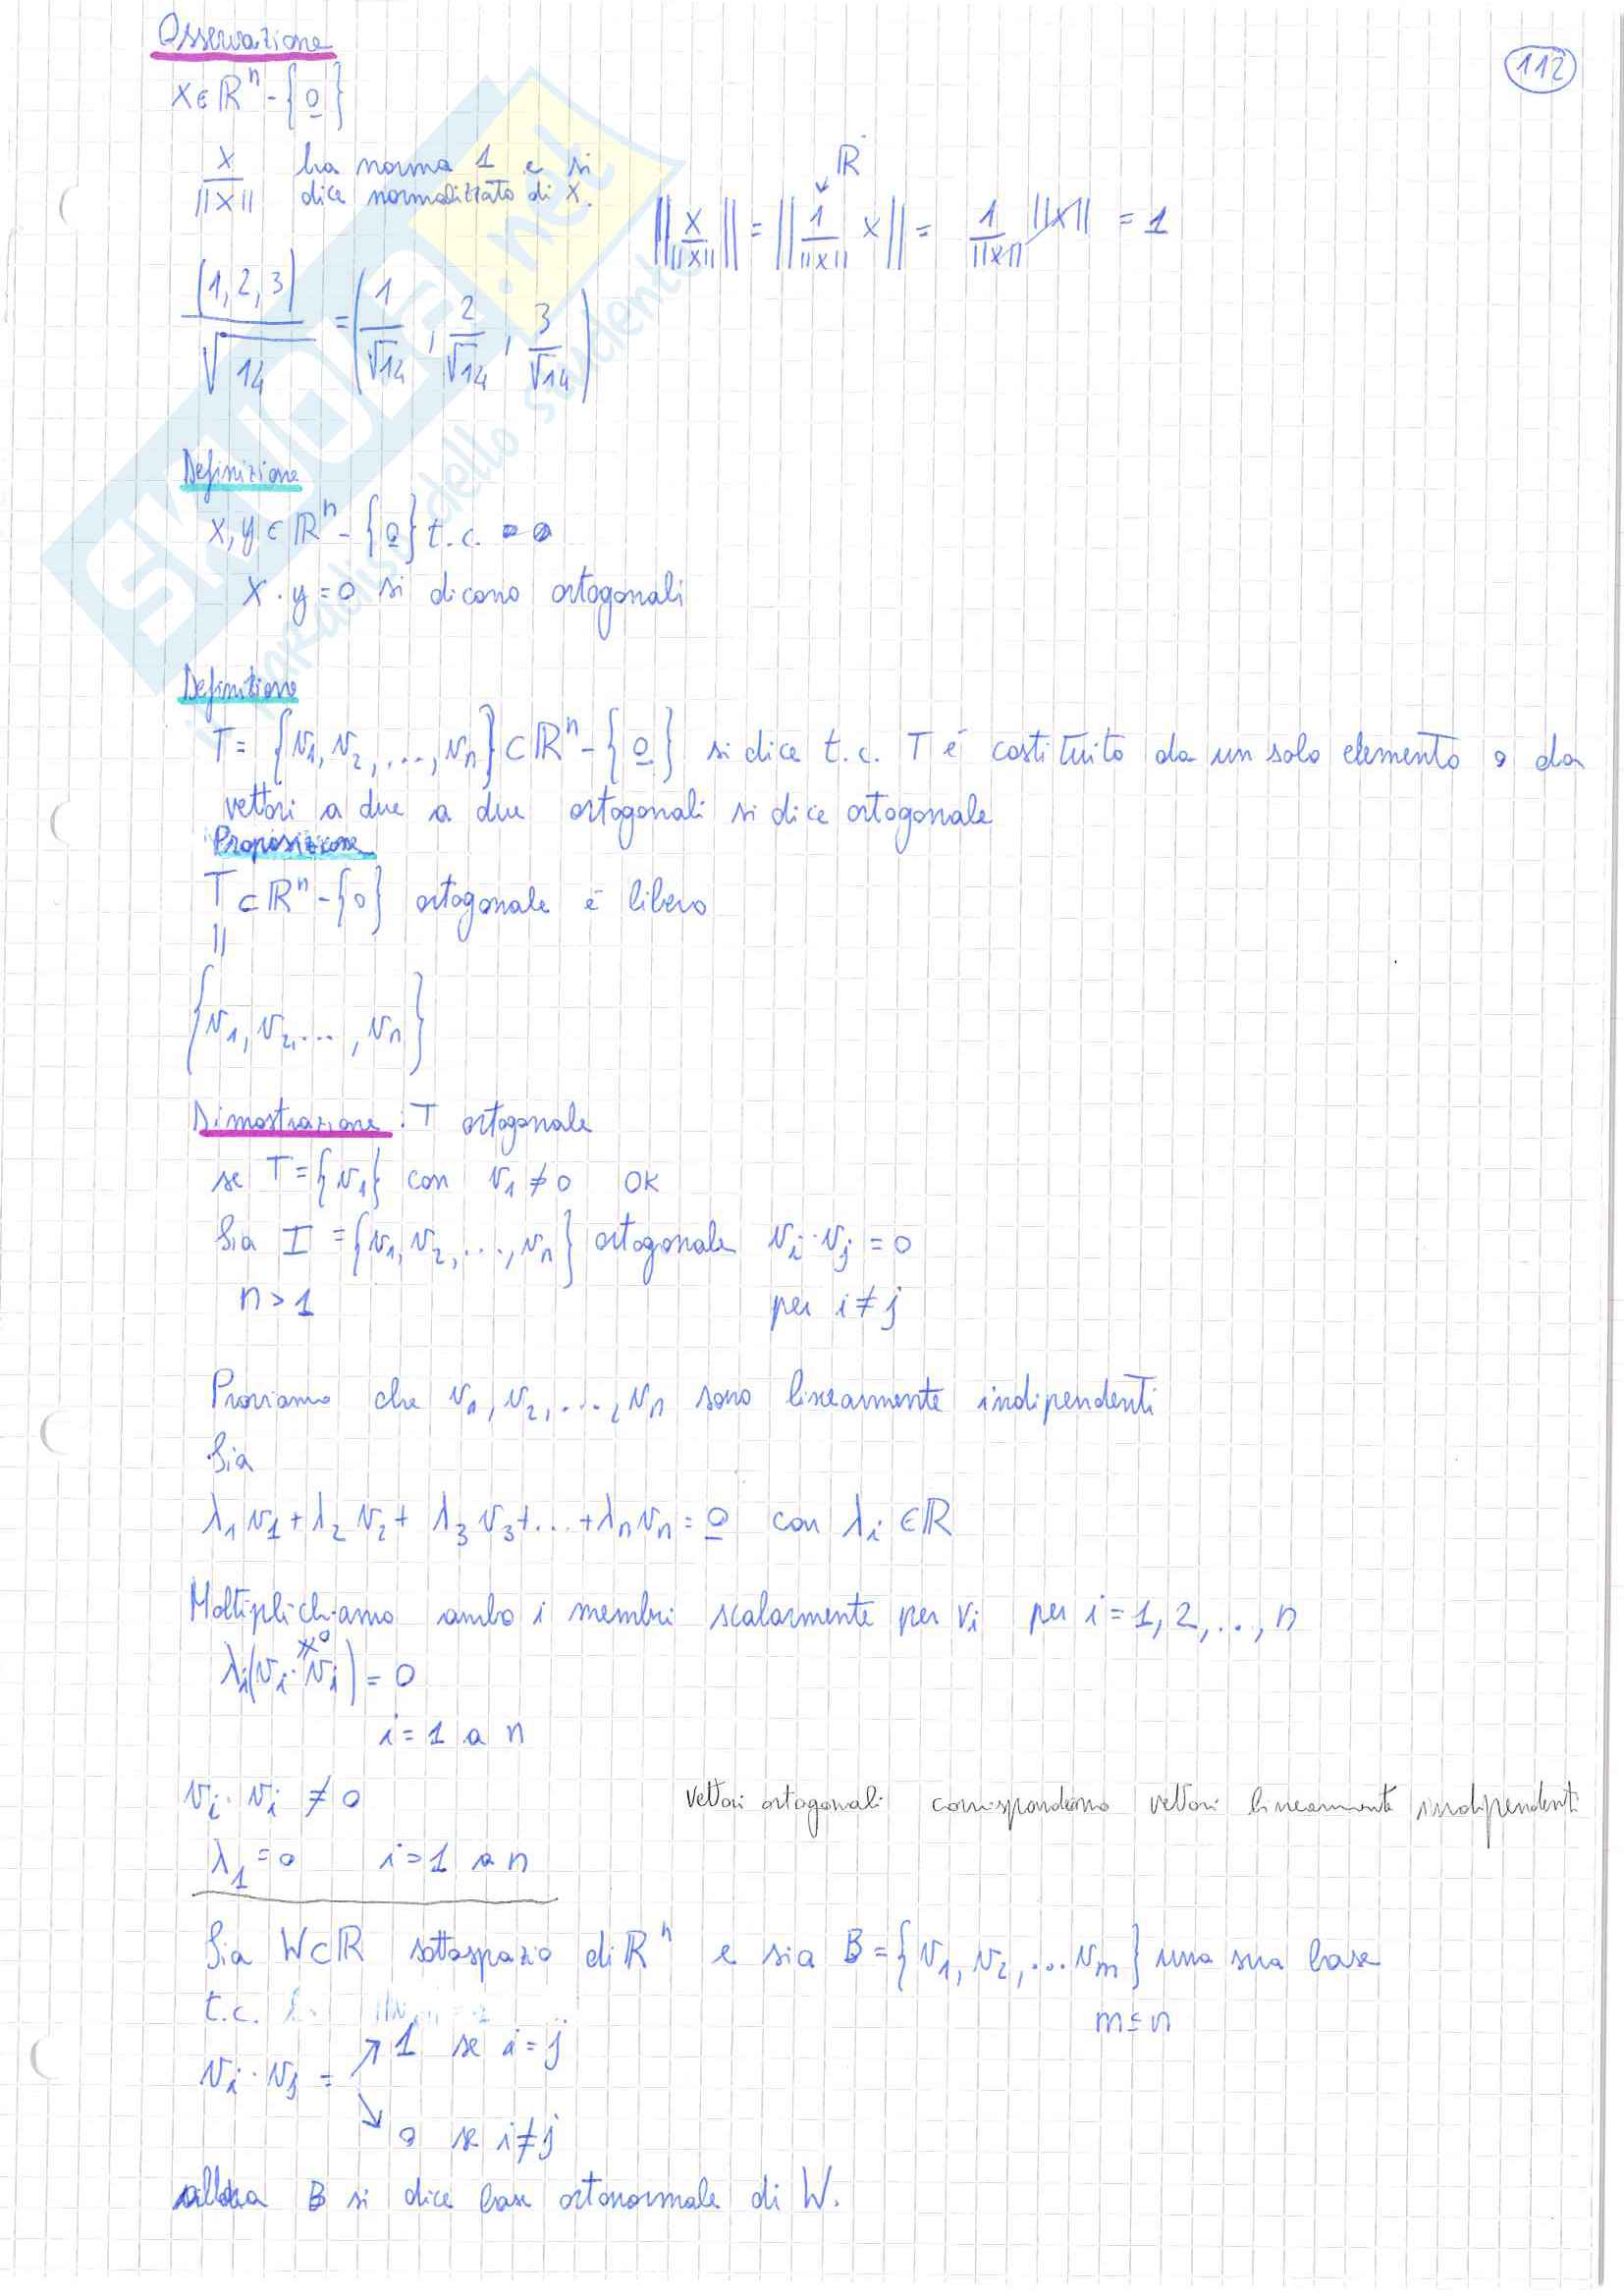 Osservazione
112
x∈ℝⁿ-{0}
x/||x|| ha norma 1 e si
dice normalizzato di x.
ℝ
||x/||x|||| = ||1/||x|| x|| = 1/||x|| ||x|| = 1
(1,2,3)/√14 = (1/√14, 2/√14, 3/√14)
Definizione
x,y ∈ ℝⁿ-{0} t.c.
x·y=0 si dicono ortogonali
Definizione
T= {v₁,v₂,...,vₙ}⊂ℝⁿ-{0} si dice t.c. T é costituito da un solo elemento o da
vettori a due a due ortogonali si dice ortogonale
Proposizione
T⊂ℝⁿ-{0} ortogonale é libero
||
{v₁,v₂,...,vₙ}
Dimostrazione: T ortogonale
se T={v₁} con v₁≠0 OK
Sia I={v₁,v₂,...,vₙ} ortogonale vᵢ·vⱼ=0
n>1 per i≠j
Proviamo che v₁,v₂,...,vₙ sono linearmente indipendenti
Sia
λ₁v₁+λ₂v₂+λ₃v₃+...+λₙvₙ=0 con λᵢ∈ℝ
Moltiplichiamo ambo i membri scalarmente per vᵢ per i=1,2,...,n
≠0
λᵢ(vᵢ·vᵢ)=0
i=1 a n
vᵢ·vᵢ≠0
Vettori ortogonali corrispondono vettori linearmente indipendenti
λ₁=0 i=1 a n
Sia W⊂ℝ sottospazio di ℝⁿ e sia B={v₁,v₂,...vₘ} una sua base
t.c. m≤n
1 se i=j
vᵢ·vⱼ=
0 se i≠j
allora B si dice base ortonormale di W.
SKUOLA.net
il paradiso dello studente